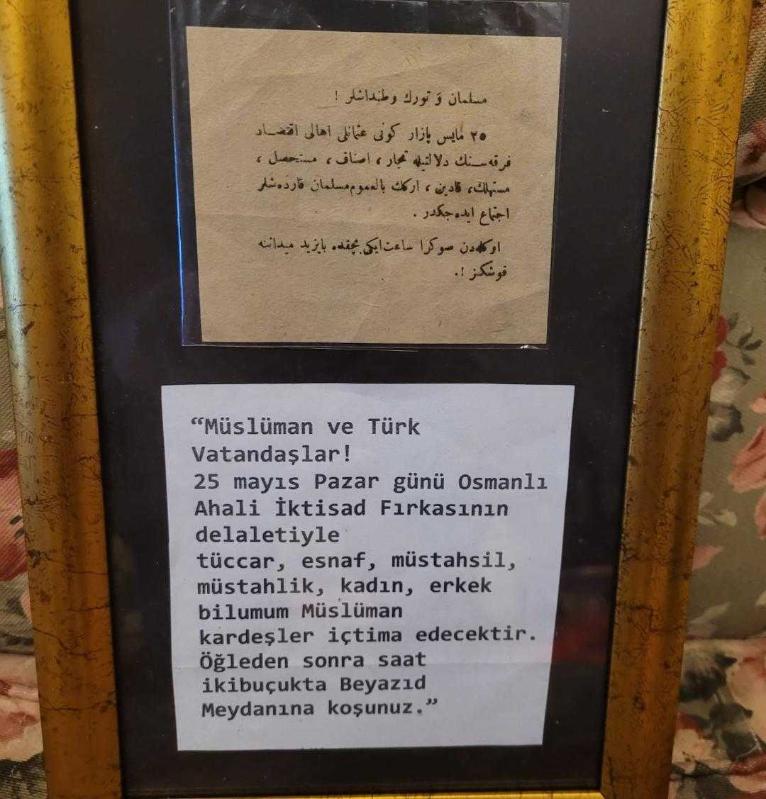 مسلمان و تورك وطنداشلر !
٢٥ مايس بازار كونى عثمانلى اهالى اقتصاد
فرقه‌سنك دلالتيله تجار ، اصناف ، مستحصل ،
مستهلك، قادين ، اركك بالعموم مسلمان قارده‌شلر
اجتماع ايده‌جكدر .
اوكله‌دن صوكرا ساعت ايكى بچقده بايزيد ميداننه
قوشكز !.
“Müslüman ve Türk
Vatandaşlar!
25 mayıs Pazar günü Osmanlı
Ahali İktisad Fırkasının
delaletiyle
tüccar, esnaf, müstahsil,
müstahlik, kadın, erkek
bilumum Müslüman
kardeşler içtima edecektir.
Öğleden sonra saat
ikibuçukta Beyazıd
Meydanına koşunuz.”